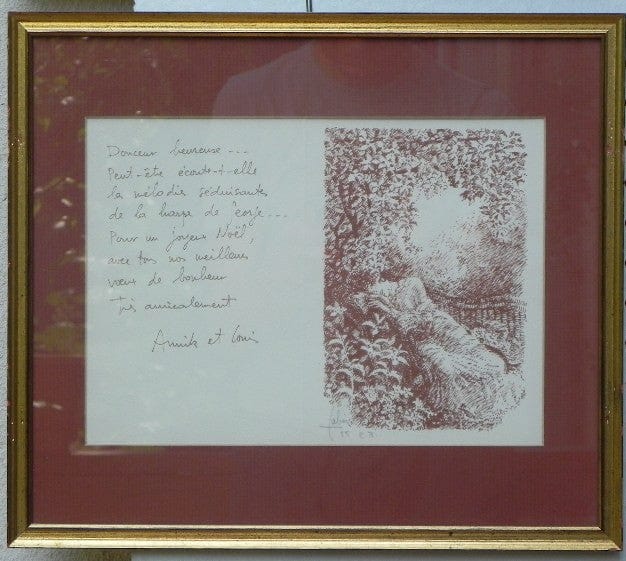 Douceur heureuse ...
Peut-être écoute-t-elle
la mélodie séduisante
de la harpe de
Pour un joyeux Noël,
avec tous nos meilleurs
vœux de bonheur
Très amicalement
Annik et Louis